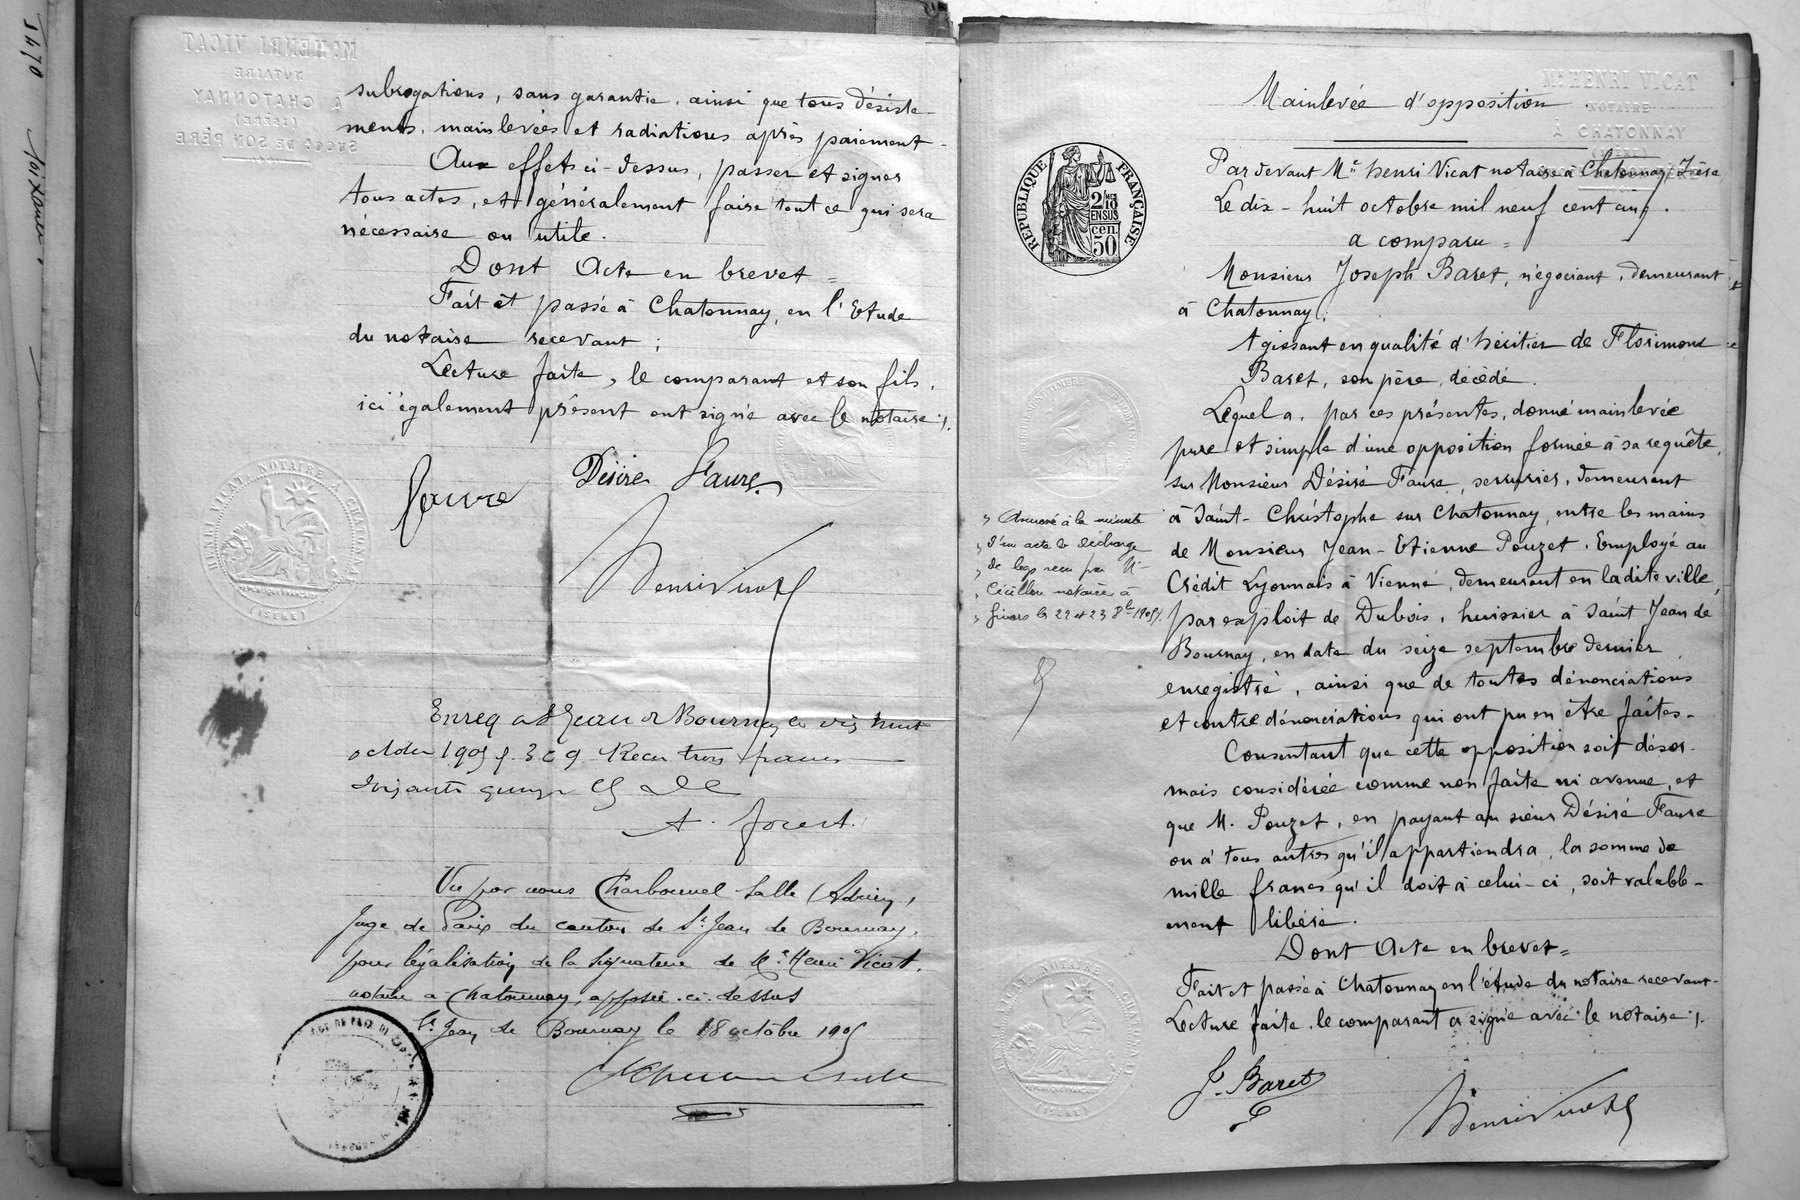 Me HENRI VICAT
NOTAIRE
À CHATONNAY
(ISÈRE)
SUCCr DE SON PÈRE
subrogations, sans garantie, ainsi que tous désiste-
ments, mainlevées et radiations après paiement-
Aux effets ci-dessus, passer et signer
tous actes, et généralement faire tout ce qui sera
nécessaire ou utile.
Dont Acte en brevet=
Fait et passé à Chatonnay, en l'Etude
du notaire recevant;
Lecture faite, le comparant et son fils,
ici également présent ont signé avec le notaire ;.
Faure Désiré Faure
Henri Vicat
HENRI VICAT NOTAIRE À CHATONNAY
(ISÈRE)
Enreg à St Jean de Bournay le dix huit
octobre 1905 f. 3 c 9. Reçu trois francs
soixante quinze
Vu par nous Charbonnel Salle (Adrien),
Juge de Paix du canton de St Jean de Bournay,
pour légalisation de la signature de Me Henri Vicat,
notaire à Chatonnay, apposée ci-dessus
St Jean de Bournay le 18 octobre 1905
Me HENRI VICAT
NOTAIRE
À CHATONNAY
(ISÈRE)
Mainlevée d'opposition
RÉPUBLIQUE FRANÇAISE
2/10
EN SUS
50 cen.
Par devant Me henri Vicat notaire à Chatonnay, Isère
Le dix-huit octobre mil neuf cent cinq.
a comparu =
Monsieur Joseph Baret, négociant, demeurant
à Chatonnay;
Agissant en qualité d'héritier de Florimond
Baret, son père, décédé.
Lequel a, par ces présentes, donné mainlevée
pure et simple d'une opposition formée à sa requête,
sur Monsieur Désiré Faure, serrurier, demeurant
à Saint-Christophe sur Chatonnay, entre les mains
de Monsieur Jean-Etienne Pouzet, Employé au
Crédit Lyonnais à Vienne, demeurant en ladite ville,
par exploit de Dubois, huissier à Saint Jean de
Bournay, en date du seize septembre dernier
enregistré, ainsi que de toutes dénonciations
et contre dénonciations qui ont pu en être faites-
Consentant que cette opposition soit désor-
mais considérée comme non faite ni avenue, et
que M. Pouzet, en payant au sieur Désiré Faure
ou à tous autres qu'il appartiendra, la somme de
mille francs qu'il doit à celui-ci, soit valable-
ment libéré.
Dont Acte en brevet=
Fait et passé à Chatonnay en l'étude du notaire recevant-
Lecture faite, le comparant a signé avec le notaire ;.
J. Baret
Henri Vicat
Annexé à la minute
d'un acte de décharge
de legs reçu par Me
notaire à
Givors les 22 et 23 8bre 1905